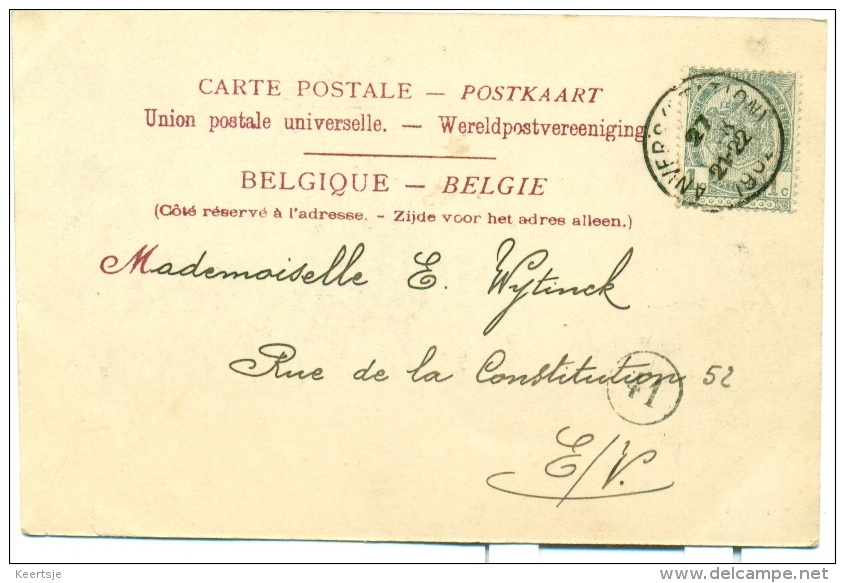 CARTE POSTALE — POSTKAART
Union postale universelle. — Wereldpostvereeniging
BELGIQUE — BELGIE
(Côté réservé à l'adresse. - Zijde voor het adres alleen.)
ANVERS
27
21-22
1902
1 1c
Mademoiselle E. Wytinck
Rue de la Constitution 52
41
E/V.
Keertsje
www.delcampe.net